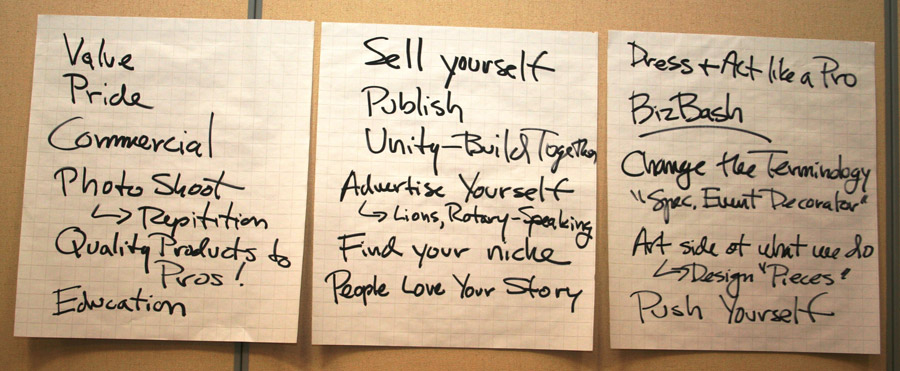 Value
Pride
Commercial
Photo Shoot
↳ Repitition
Quality Products to
Pros!
Education
Sell yourself
Publish
Unity-Build Together
Advertise Yourself
↳ Lions, Rotary-Speaking
Find your niche
People Love Your Story
Dress + Act like a Pro
BizBash
Change the Terminology
"Spec. Event Decorator"
Art side of what we do
↳ Design "Pieces"
Push Yourself